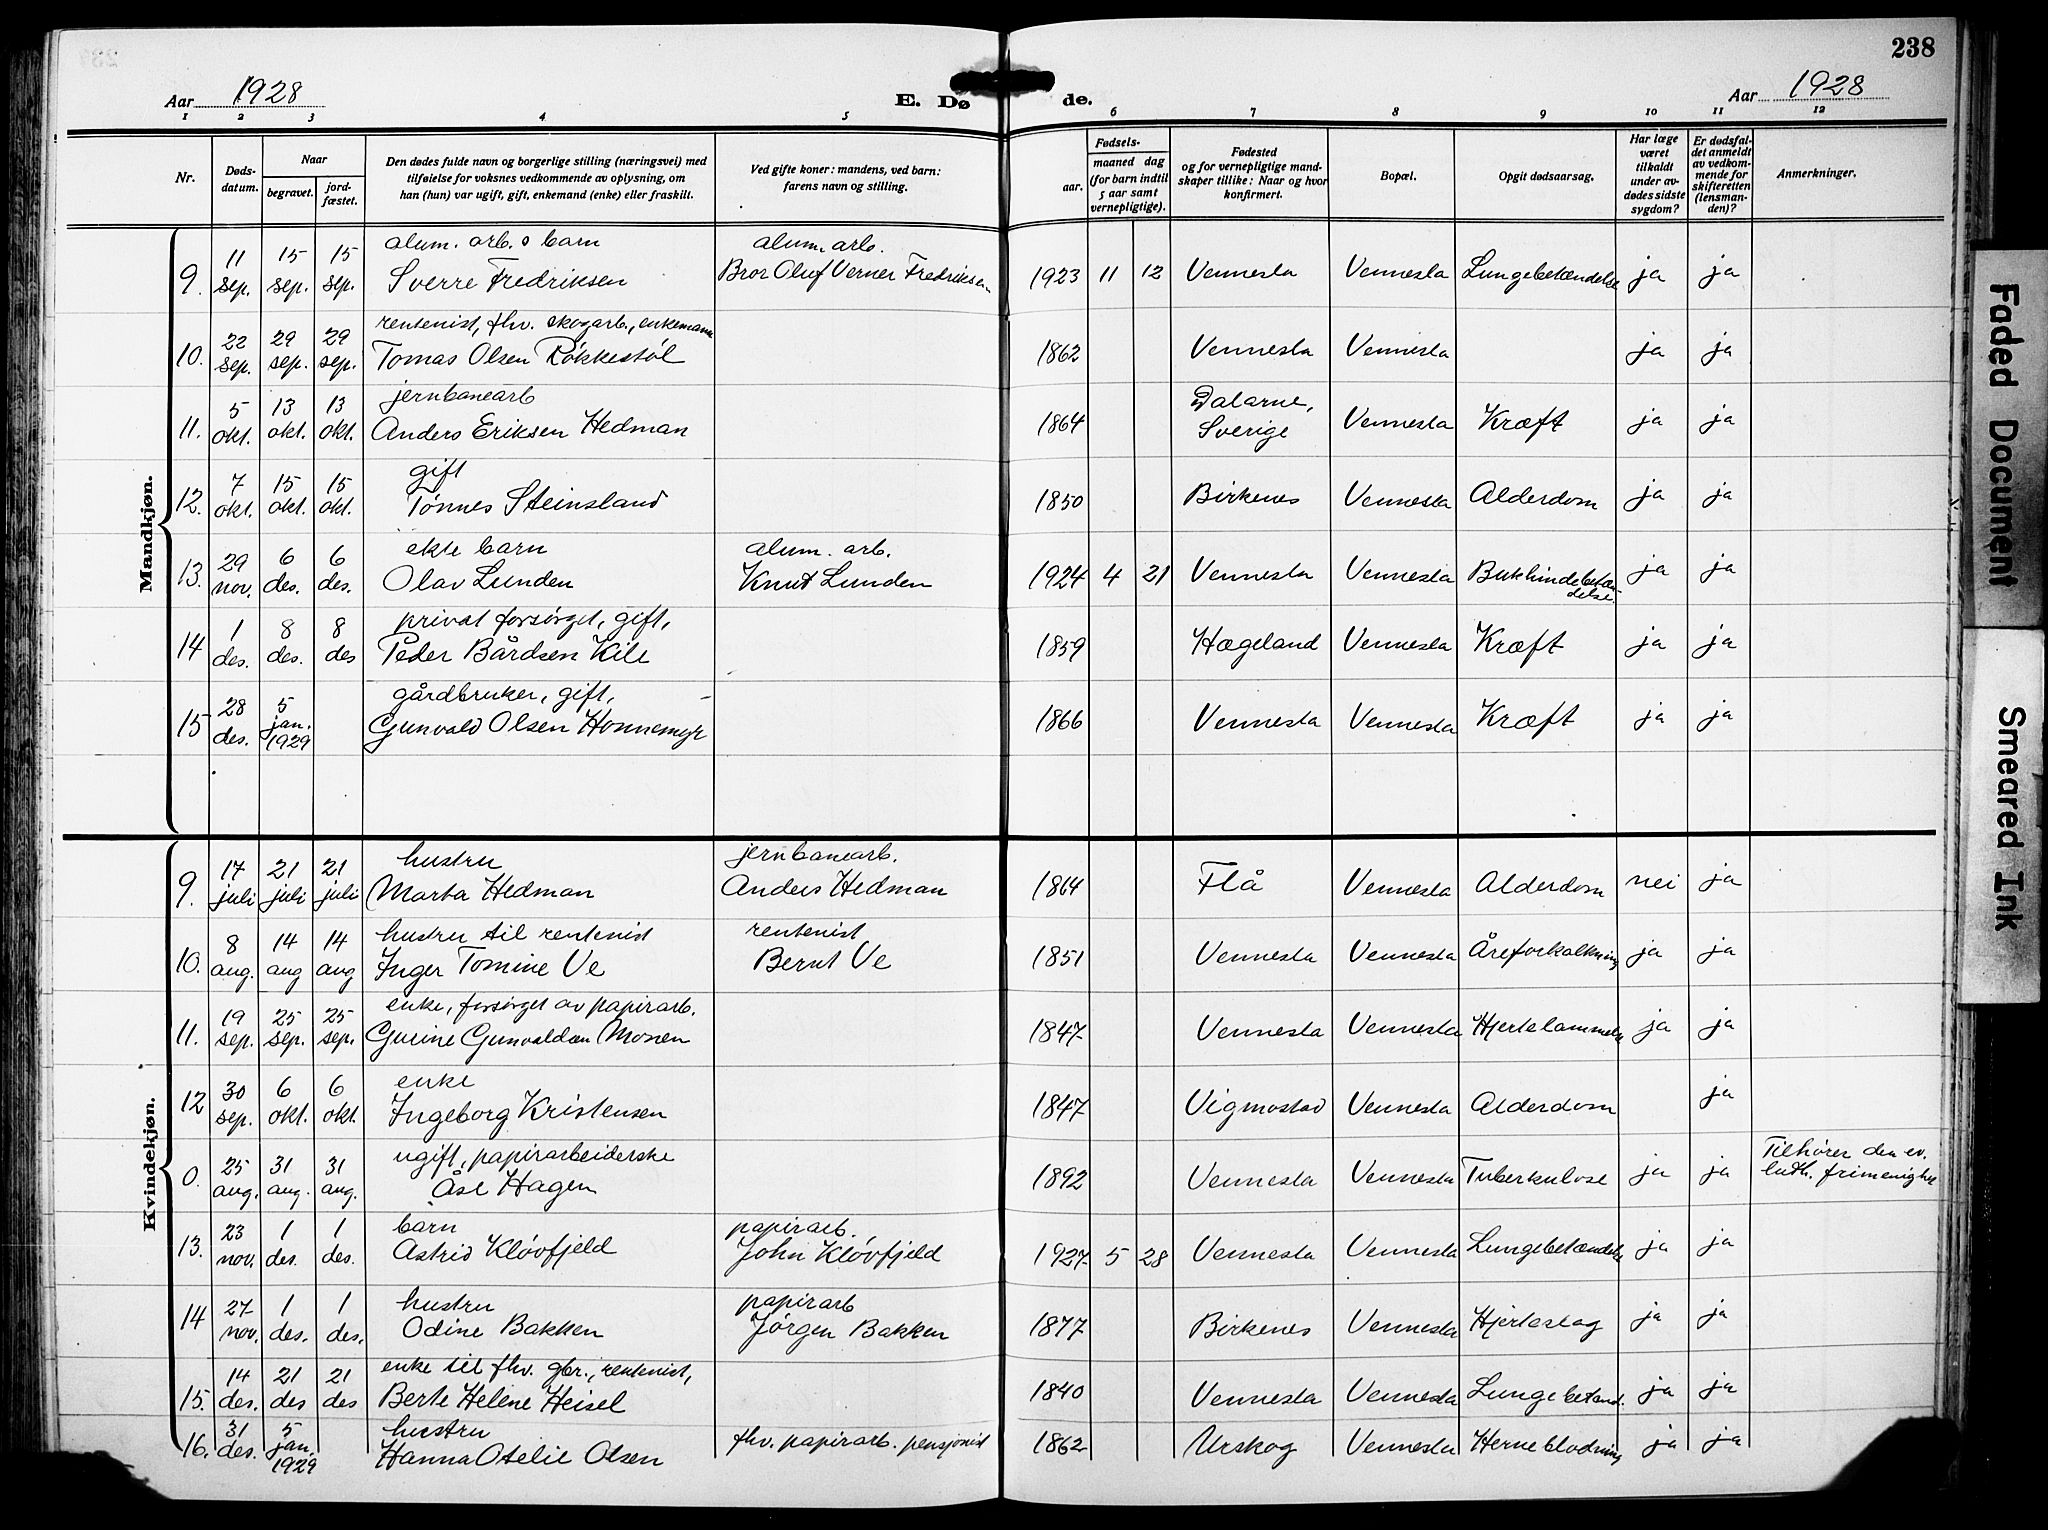 238
Aar 1928
E. Dø de.
Aar 1928
1 2 3 4 5 6 7 8 9 10 11 12
Nr.
Døds-
datum.
Naar
begravet.
jord-
fæstet.
Den dødes fulde navn og borgerlige stilling (næringsvei) med
tilføielse for voksnes vedkommende av oplysning, om
han (hun) var ugift, gift, enkemand (enke) eller fraskilt.
Ved gifte koner: mandens, ved barn:
farens navn og stilling.
Fødsels-
aar.
maaned dag
(for barn indtil
5 aar samt
vernepligtige).
Fødested
og for vernepligtige mand-
skaper tillike: Naar og hvor
konfirmert.
Bopæl.
Opgit dødsaarsag.
Har læge
været
tilkaldt
under av-
dødes sidste
sygdom?
Er dødsfal-
det anmeldt
av vedkom-
mende for
skifteretten
(lensman-
den)?
Anmerkninger.
Mandkjøn.
alum. arb. s barn alum. arb.
9. 11 sep. 15 sep. 15 sep. Sverre Fredriksen Bror Oluf Verner Fredriksen 1923 11 12 Vennesla Vennesla Lungebetændelse ja ja
rentenist, fhv. skogarb., enkemann
10. 22 sep. 29 sep. 29 sep. Tomas Olsen Røkkestøl 1862 Vennesla Vennesla ja ja
jernbanearb
11. 5 okt. 13 okt. 13 okt. Anders Eriksen Hedman 1864 Dalarne, Sverige Vennesla Kræft ja ja
gift
12. 7 okt. 15 okt. 15 okt. Tønnes Steinsland 1850 Birkenes Vennesla Alderdom ja ja
ekte barn alum. arb.
13. 29 nov. 6 des. 6 des. Olav Lunden Knut Lunden 1924 4 21 Vennesla Vennesla Bukhindebetæn-
delse. ja ja
privat forsørget, gift,
14 1 des. 8 des. 8 des Peder Bårdsen Kile 1859 Hægeland Vennesla Kræft ja ja
gårdbruker, gift,
15 28 des. 5 jan. 1929 Gunvald Olsen Honnemyr 1866 Vennesla Vennesla Kræft ja ja
Kvindekjøn.
hustru jernbanearb.
9. 17 juli 21 juli 21 juli Marta Hedman Anders Hedman 1864 Flå Vennesla Alderdom nei ja
hustru til rentenist rentenist
10. 8 aug. 14 aug 14 aug Inger Tomine Ve Bernt Ve 1851 Vennesla Vennesla Åreforkalkning ja ja
enke, forsørget av papirarb.
11. 19 sep. 25 sep. 25 sep. Gurine Gunvaldsen Mosen 1847 Vennesla Vennesla Hjertelammelse ja ja
enke
12 30 sep. 6 okt. 6 okt. Ingeborg Kristensen 1847 Vigmostad Vennesla Alderdom ja
ugift, papirarbeiderske
0. 25 aug. 31 aug. 31 aug. Åse Hagen 1892 Vennesla Vennesla Tuberkulose ja ja Tilhører den ev.
luth. frimenighet
barn papirarb.
13. 23 nov. 1 des. 1 des. Astrid Kløvfjeld John Kløvfjeld 1927 5 28 Vennesla Vennesla Lungebetændelse ja ja
hustru papirarb
14 27 nov. 1 des. 1 des. Odine Bakken Jørgen Bakken 1877 Birkenes Vennesla Hjerteslag ja ja
enke til fhv. gbr., rentenist,
15. 14 des. 21 des 21 des Berte Helene Heisel 1840 Vennesla Vennesla Lungebetænd. ja ja
hustru
16. 31 des. 5 jan. 1929 Hanna Otelie Olsen fhv. papirarb. pensjonist 1862 Urskog Vennesla Herneblodning ja ja
Faded Document
Smeared Ink